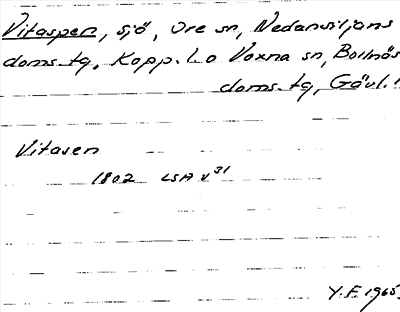 Vitaspen, sjö, Ore sn, Nedansiljans
doms. tg, Kopp. l. o Voxna sn, Bollnäs
doms. tg, Gävl. l.
Vitasen
1802 LSA V 31
Y.F. 1965.